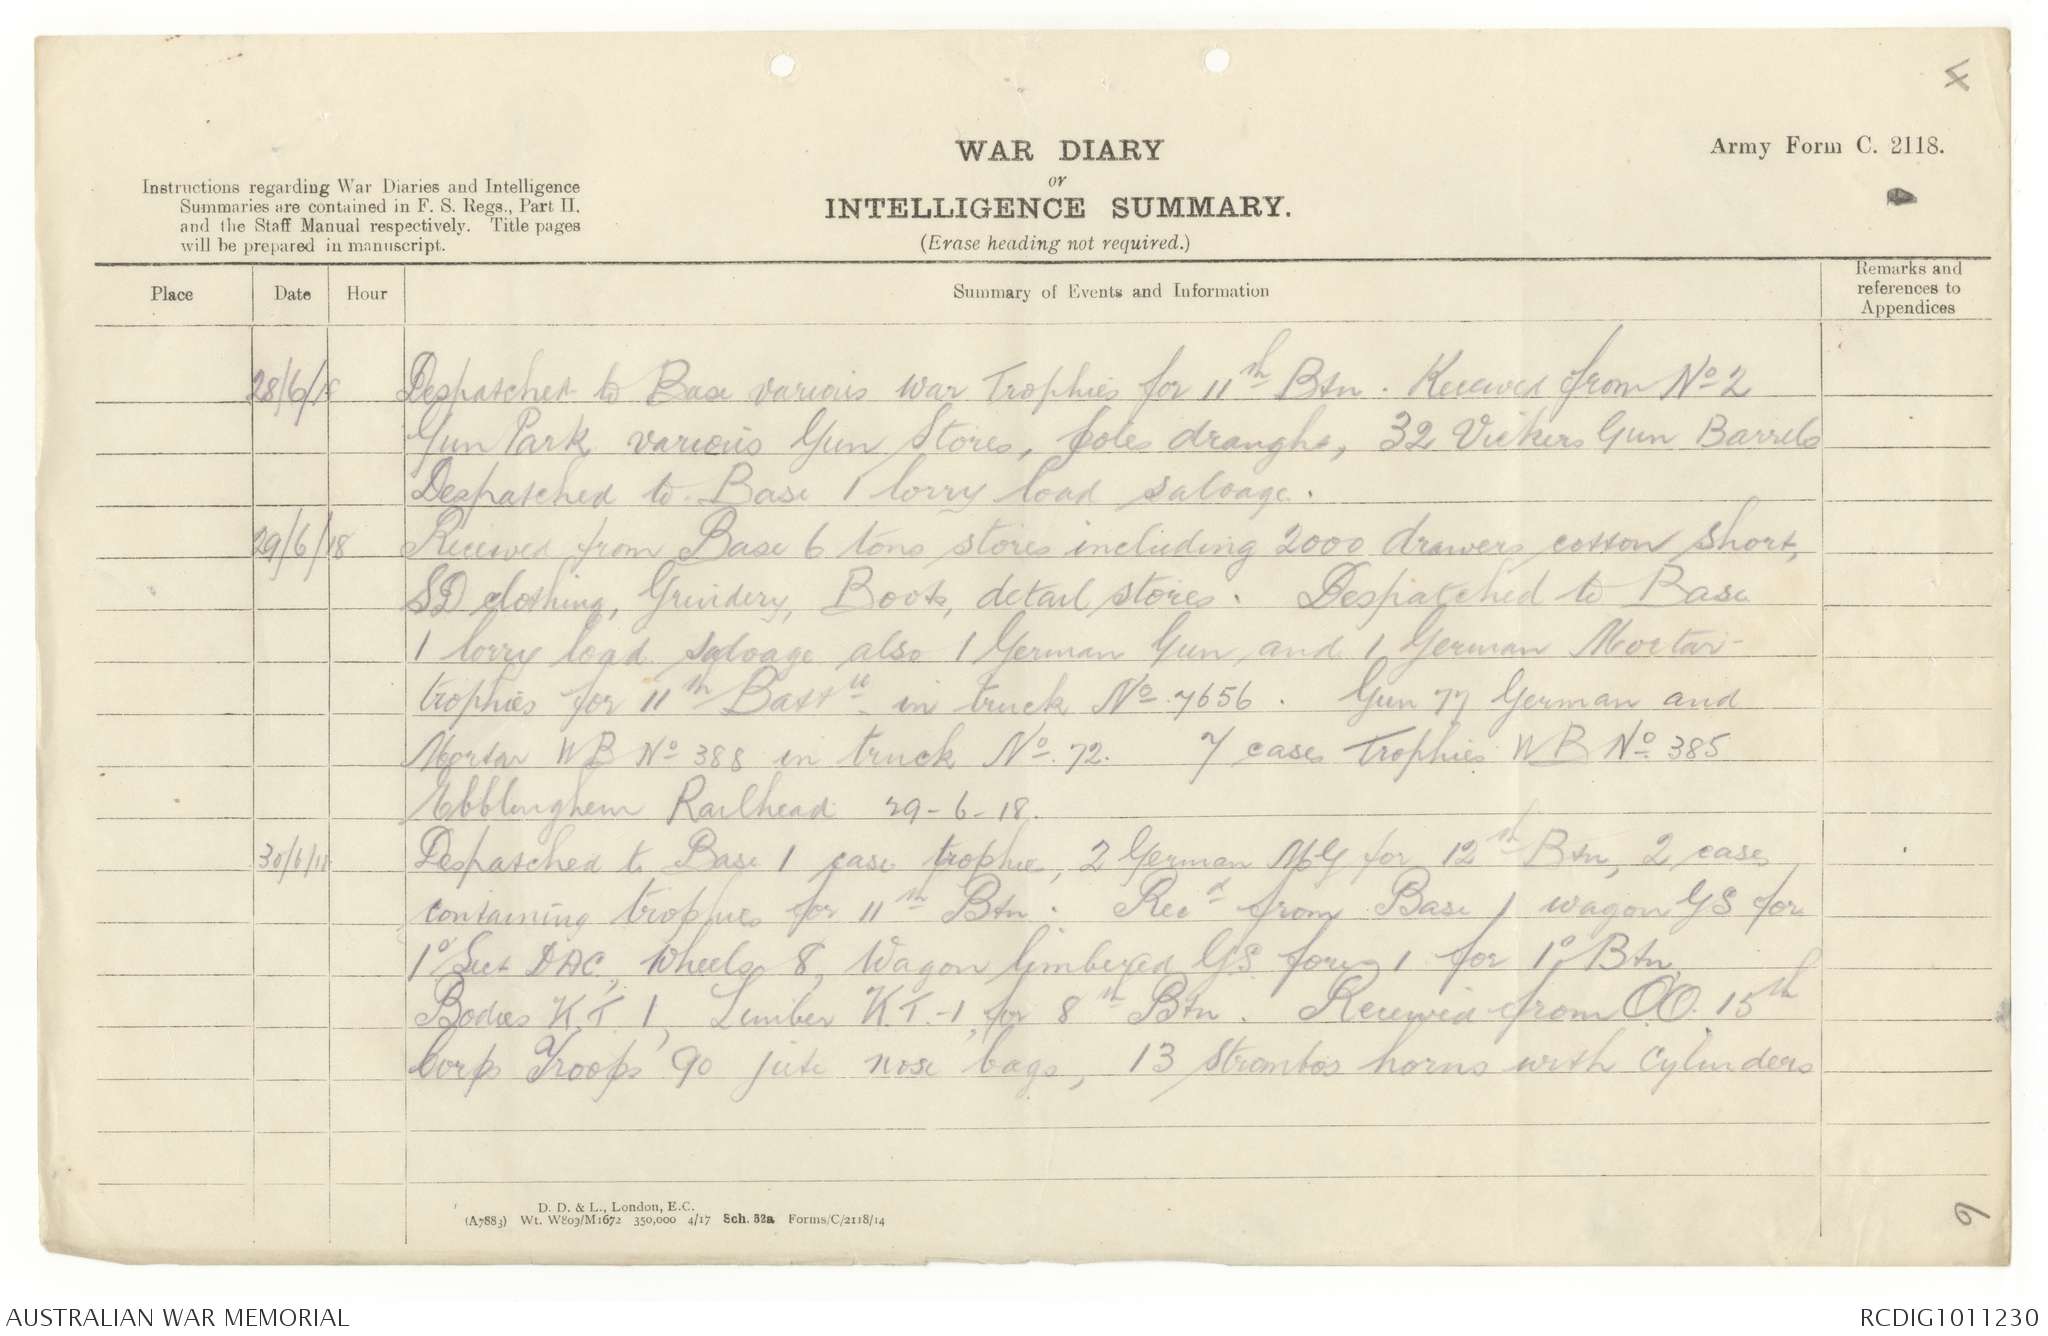 4
WAR DIARY
or
INTELLIGENCE SUMMARY.
(Erase heading not required.)
Army Form C. 2118.
Instructions regarding War Diaries and Intelligence
Summaries are contained in F. S. Regs., Part II.
and the Staff Manual respectively. Title pages
will be prepared in manuscript.
Place Date Hour Summary of Events and Information Remarks and references to Appendices
28/6/18 Despatched to Base various War Trophies for 11th Btn. Received from No 2
Gun Park various Gun Stores, poles draught, 32 Vickers Gun Barrels
Despatched to Base 1 lorry load salvage.
29/6/18 Received from Base 6 tons stores including 2000 drawers cotton short,
SD clothing, Grindery, Boots, detail stores. Despatched to Base
1 lorry load salvage also 1 German Gun and 1 German Mortar
trophies for 11th Battn in truck No. 7656. Gun 77 German and
Mortar WB No 388 in truck No. 72. 7 cases Trophies WB No. 385
Ebblinghem Railhead 29-6-18.
30/6/18 Despatched to Base 1 case trophie, 2 German MG for 12th Btn, 2 cases
containing trophies for 11th Btn. Recd from Base 1 wagon GS for
1o Sect DAC, Wheels 8, Wagon limbered GS fore 1 for 1o Btn,
Bodies K.T. 1, Limber K.T. 1, for 8th Btn. Received from OO. 15th
Corps Troops 90 jute nose bags, 13 Strombos horns with cylinders
D. D. & L., London, E.C.
(A7883) Wt. W809/M1672 350,000 4/17 Sch. 52a Forms/C/2118/14
6
AUSTRALIAN WAR MEMORIAL RCDIG1011230